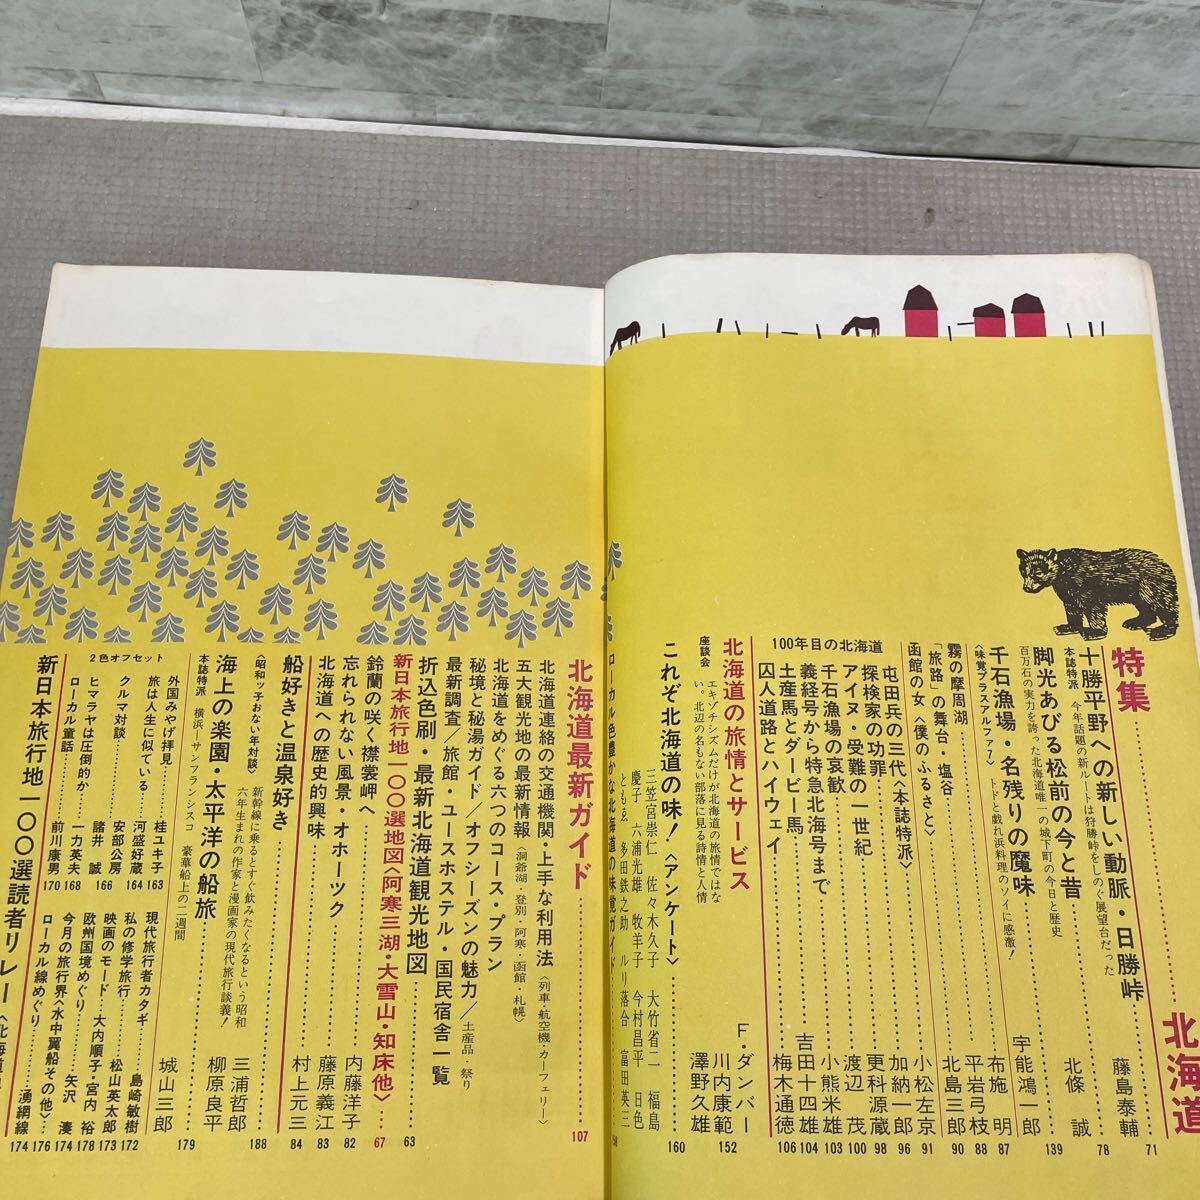 特集 北海道
十勝平野への新しい動脈・日勝峠 藤島泰輔 71
本誌特派 今年話題の新ルートは狩勝峠をしのぐ展望台だった
脚光あびる松前の今と昔 北條 誠 78
百万石の実力を誇った北海道唯一の城下町の今日と歴史
千石漁場・名残りの魔味 宇能鴻一郎 139
〈味覚プラスアルファー〉 トドと戯れ浜料理のソイに感激!
霧の摩周湖 布施 明 87
「旅路」の舞台・塩谷 平岩弓枝 88
函館の女〈僕のふるさと〉 北島三郎 90
屯田兵の三代〈本誌特派〉 小松左京 91
100年目の北海道
探検家の功罪 加納一郎 96
アイヌ・受難の一世紀 更科源蔵 98
千石漁場の哀歓 渡辺 茂 100
義経号から特急北海号まで 小熊米雄 103
土産馬とダービー馬 吉田十四雄 104
囚人道路とハイウェイ 梅木通徳 106
北海道の旅情とサービス F・ダンバー 川内康範 澤野久雄 152
座談会 エキゾチシズムだけが北海道の旅情ではない。北辺の名もない部落に見る詩情と人情
これぞ北海道の味!〈アンケート〉 160
三笠宮崇仁 佐々木久子 大竹省二 福島慶子 六浦光雄 牧羊子 今村昌平 日色ともゑ 多田鉄之助 ルリ落合 富田英三
ローカル色豊かな北海道の味覚ガイド
北海道最新ガイド 107
北海道連絡の交通機関・上手な利用法〈列車・航空機・カーフェリー〉
五大観光地の最新情報〈洞爺湖・登別・阿寒・函館・札幌〉
北海道をめぐる六つのコース・プラン
秘境と秘湯ガイド/オフシーズンの魅力/土産品・祭り
最新調査/旅館・ユースホステル・国民宿舎一覧
折込色刷・最新北海道観光地図 63
新日本旅行地一〇〇選地図〈阿寒三湖・大雪山・知床他〉 67
鈴蘭の咲く襟裳岬へ 内藤洋子 82
忘れられない風景・オホーツク 藤原義江 83
北海道への歴史的興味 村上元三 84
船好きと温泉好き 三浦哲郎 柳原良平 188
〈昭和ッ子おない年対談〉 新幹線に乗るとすぐ飲みたくなるという昭和六年生まれの作家と漫画家の現代旅行談義!
海上の楽園・太平洋の船旅 城山三郎 179
本誌特派 横浜―サンフランシスコ 豪華船上の二週間
2色オフセット
外国みやげ拝見 桂ユキ子 163
旅は人生に似ている 河盛好蔵 164
クルマ対談 安部公房 諸井 誠 166
ヒマラヤは圧倒的か 一力英夫 168
ローカル童話 前川康男 170
現代旅行者カタギ 島崎敏樹 172
私の修学旅行 松山英太郎 173
映画のモード 大内順子・宮内 裕 178
欧州国境めぐり 矢沢 湊 174
今月の旅行界〈水中翼船その他〉 176
ローカル線めぐり 湧網線 174
新日本旅行地一〇〇選読者リレー〈北海道